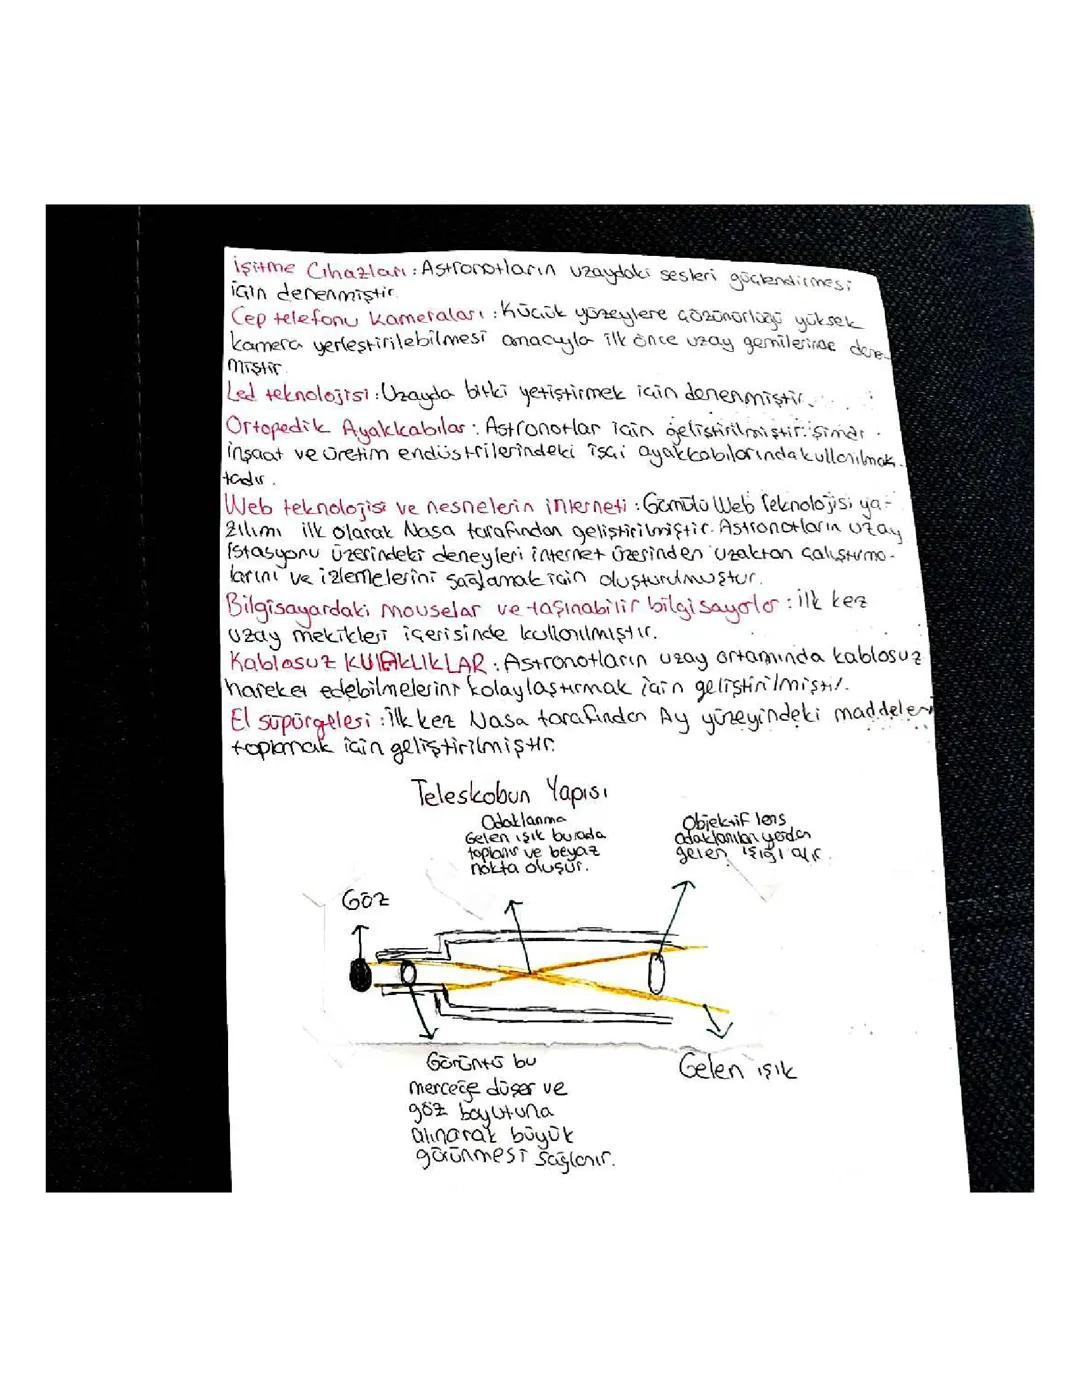 İşitme Cihazları: Astronotların uzaydaki sesleri güçlendirmesi
için denenmiştir.
Cep telefonu kameraları: Küçük yüzeylere çözünürlüğü yüksek
kamera yerleştirilebilmesi amacıyla ilk önce uzay gemilerinde dene-
miştir.
Led teknolojisi: Uzayda bitki yetiştirmek için denenmiştir.
Ortopedik Ayakkabılar: Astronotlar için geliştirilmiştir. Şimdi
inşaat ve üretim endüstrilerindeki işçi ayakkabılarında kullanılmak-
tadır.
Web teknolojisi ve nesnelerin interneti: Gömülü Web Teknolojisi ya-
zılımı ilk olarak Nasa tarafından geliştirilmiştir. Astronotların uzay
istasyonu üzerindeki deneyleri internet üzerinden uzaktan çalıştırma-
larını ve izlemelerini sağlamak için oluşturulmuştur.
Bilgisayardaki mouselar ve taşınabilir bilgisayarlar: ilk kez
uzay mekikleri içerisinde kullanılmıştır.
Kablosuz KULAKLIKLAR: Astronotların uzay ortamında kablosuz
hareket edebilmelerini kolaylaştırmak için geliştirilmiştir.
El süpürgelesi: ilk kez Nasa tarafından Ay yüzeyindeki maddeleri
toplamak için geliştirilmiştir.
Teleskobun Yapısı
Odaklanma
Gelen ışık burada
toplanır ve beyaz
nokta oluşur.
Objektif lens
odaklanılan yerden
gelen ışığı alır.
Göz
Görüntü bu
merceğe düşer ve
göz boyutuna
alınarak büyük
görünmesi sağlanır.
Gelen ışık